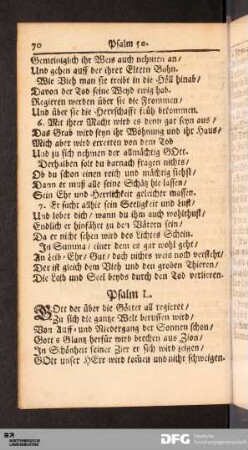 70 Psalm 50.
Gemeiniglich ihr Weis auch nehmen an/
Und gehen auff der ihrer Eltern Bahn.
Wie Vieh man sie treibt in die Höll hinab/
Davon der Tod seine Weyd ewig hab.
Regieren werden über sie die Frommen/
Und über sie die Herrschafft früh bekommen.
6. Mit ihrer Macht wird es denn gar seyn aus/
Das Grab wird seyn ihr Wohnung und ihr Haus/
Mich aber wird erretten von dem Tod
Und zu sich nehmen der allmächtig GOtt.
Derhalben solt du darnach fragen nichts/
Ob du schon einen reich und mächtig siehst/
Dann er muß alle seine Schätz hie lassen/
Sein Ehr und Herrlichkeit geleichermassen.
7. Er sucht allhie sein Seeligkeit und Lust/
Und lobet dich/ wann du ihm auch wohlthust/
Endlich er hinfährt zu den Vätern sein/
Da er nicht sehen wird des Liechts Schein.
In Summa/ einer dem es gar wohl geht/
An Leib-Ehr/ Gut/ doch nichts weis noch versteht/
Der ist gleich dem Vieh und den groben Thieren/
Die Leib und Seel beyds durch den Tod verlieren.
Psalm L.
GOtt der über die Götter all regieret/
Zu sich die gantze Welt beruffen wird/
Von Auff- und Niedergang der Sonnen schon/
Gott's Glantz herfür wird brechen aus Zion/
In Schönheit seiner Zier er sich wird zeigen/
GOtt unser HErr wird komen und nicht schweigen.
DFG Deutsche
Forschungsgemeinschaft